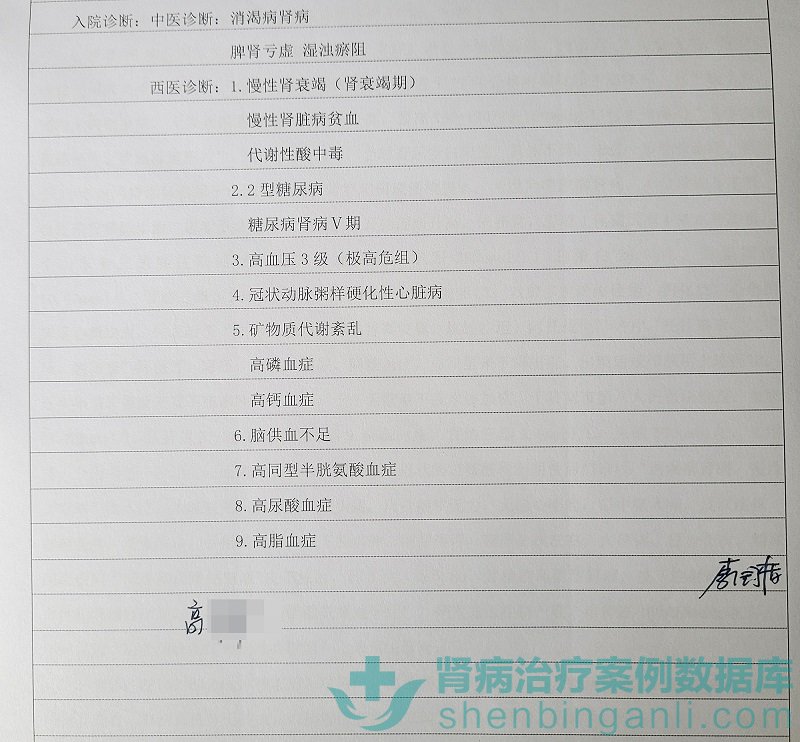 入院诊断：中医诊断：消渴病肾病
脾肾亏虚 湿浊瘀阻
西医诊断：1.慢性肾衰竭（肾衰竭期）
慢性肾脏病贫血
代谢性酸中毒
2.2型糖尿病
糖尿病肾病Ⅴ期
3.高血压3级（极高危组）
4.冠状动脉粥样硬化性心脏病
5.矿物质代谢紊乱
高磷血症
高钙血症
6.脑供血不足
7.高同型半胱氨酸血症
8.高尿酸血症
9.高脂血症
高
肾病治疗案例数据库
shenbinganli.com